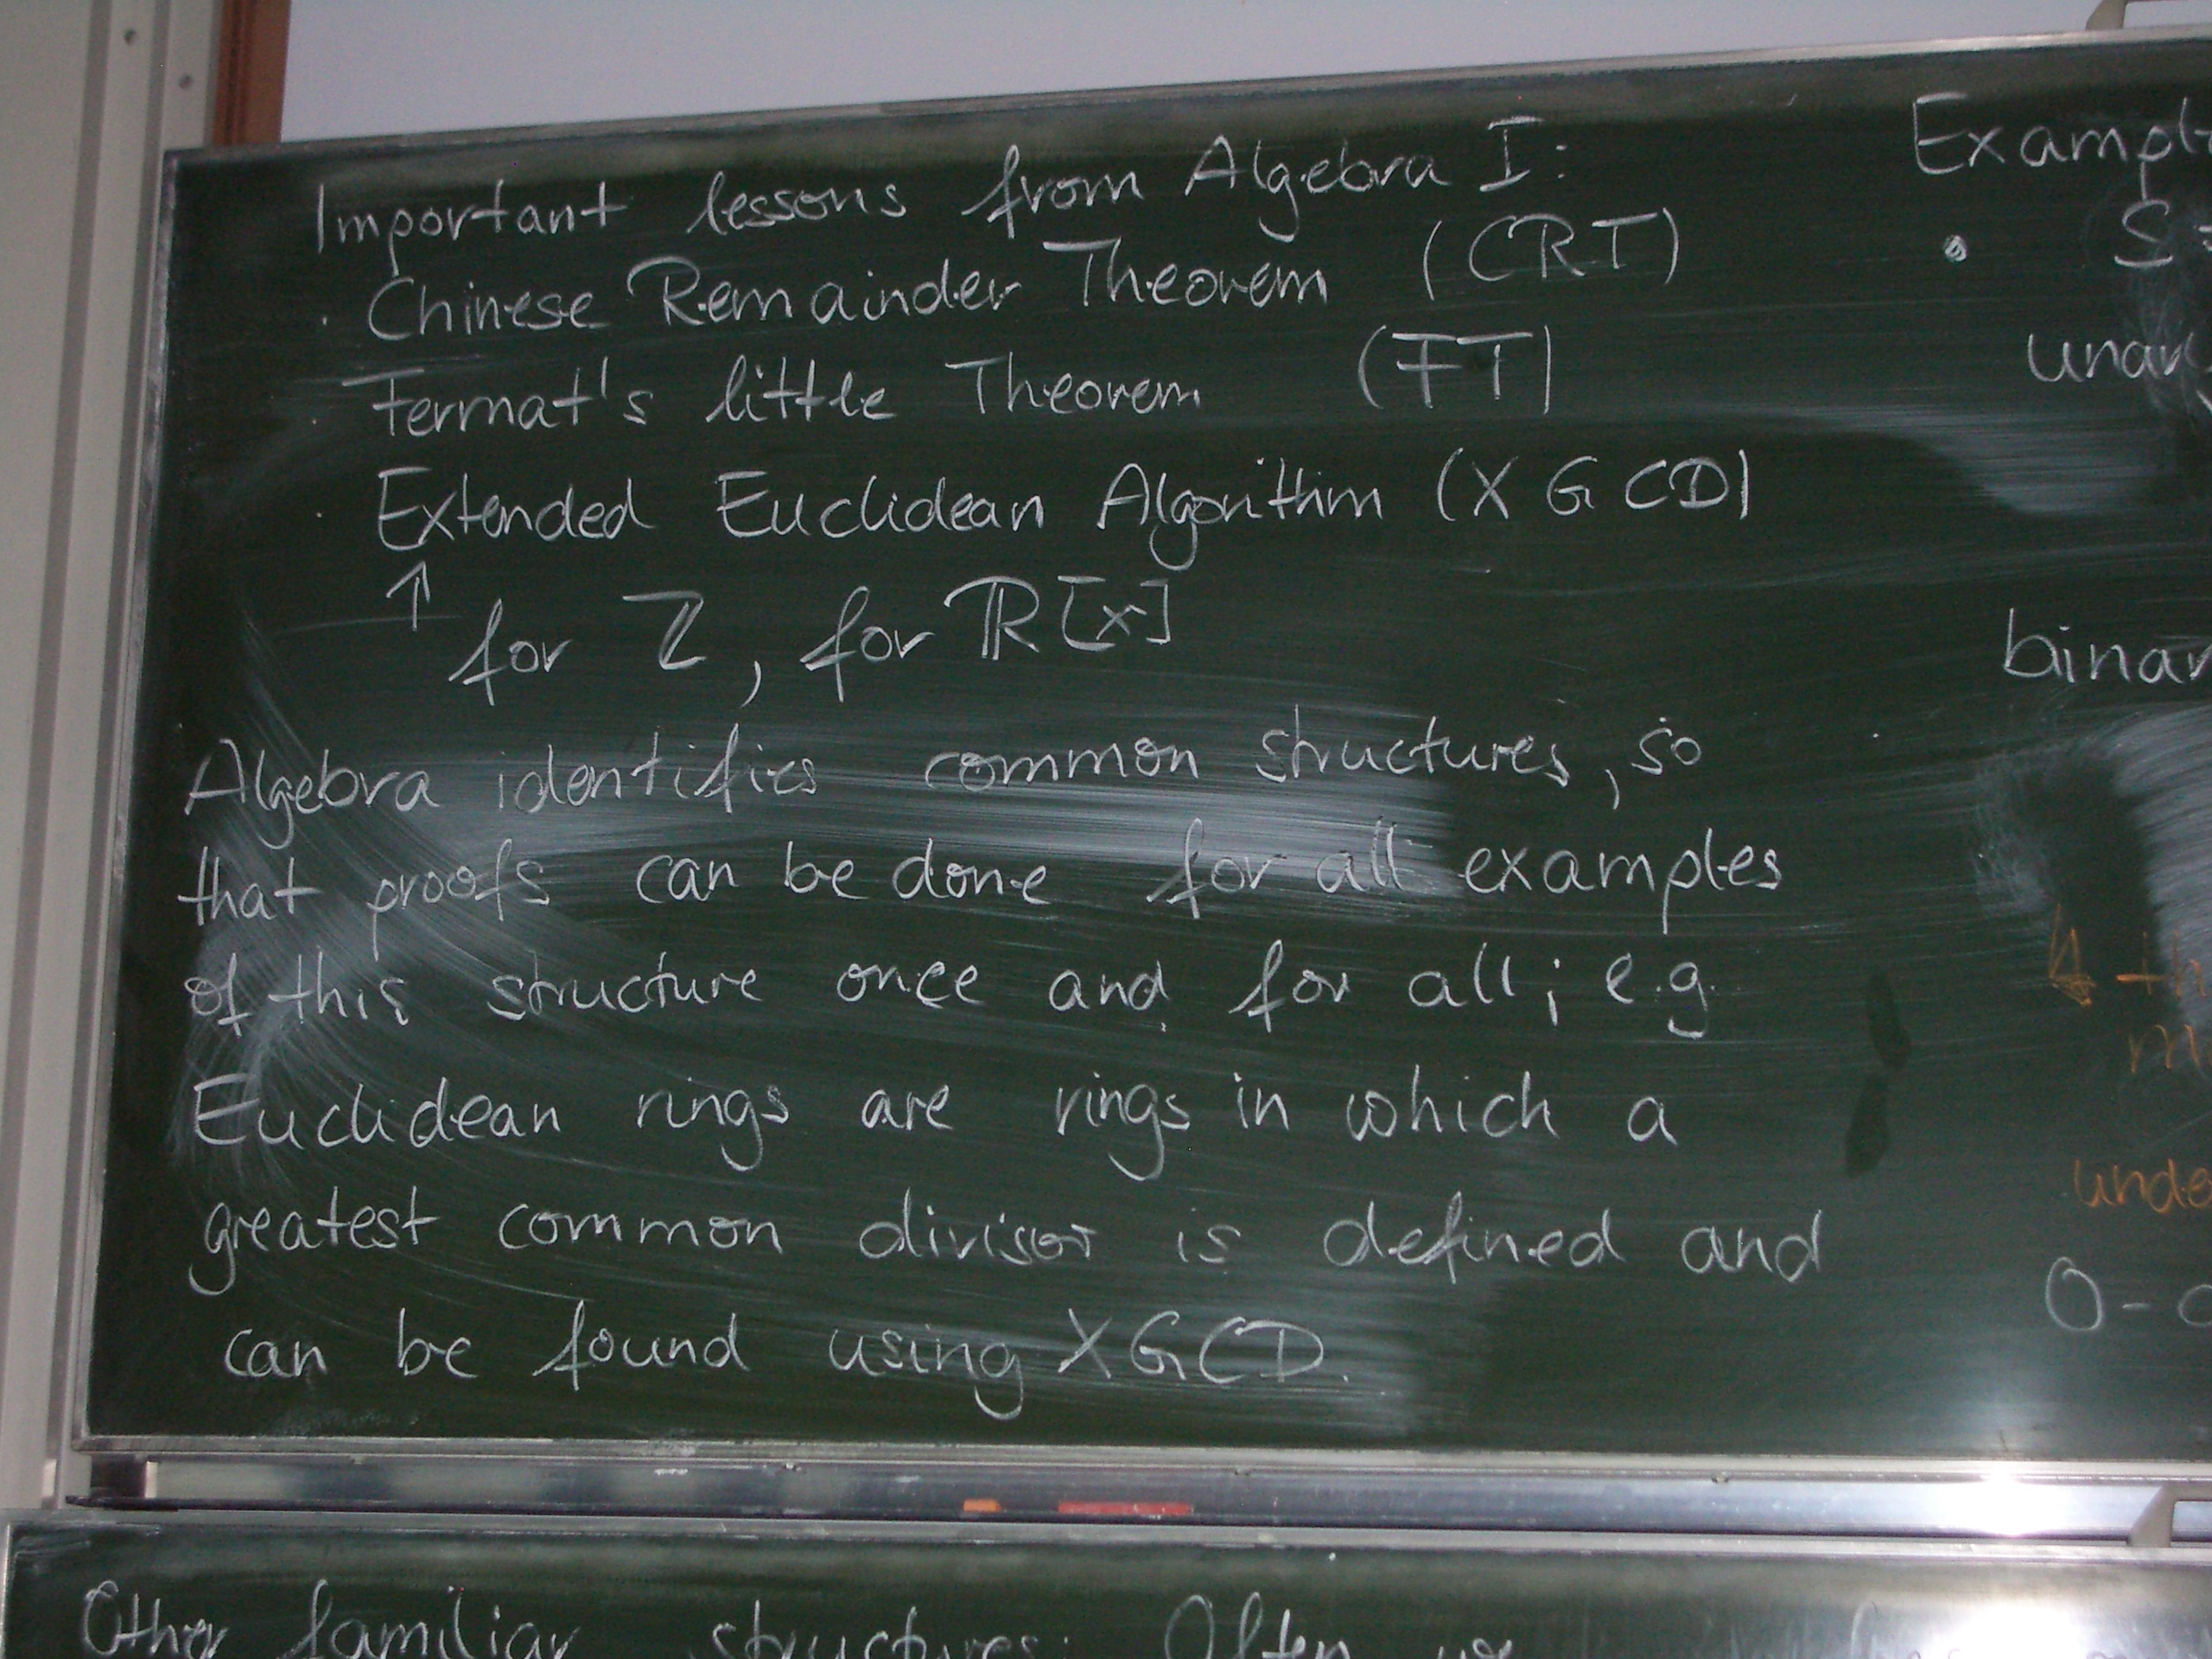 Important lessons from Algebra I:
· Chinese Remainder Theorem (CRT)
Fermat's little Theorem (FT)
· Extended Euclidean Algorithm (XGCD)
↑ for Z, for R[x]
Algebra identifies common structures, so
that proofs can be done for all examples
of this structure once and for all; e.g.
Euclidean rings are rings in which a
greatest common divisor is defined and
can be found using XGCD.
Exampl
• S
unar
binar
th
m
unde
0-
Other familiar structures: Often we